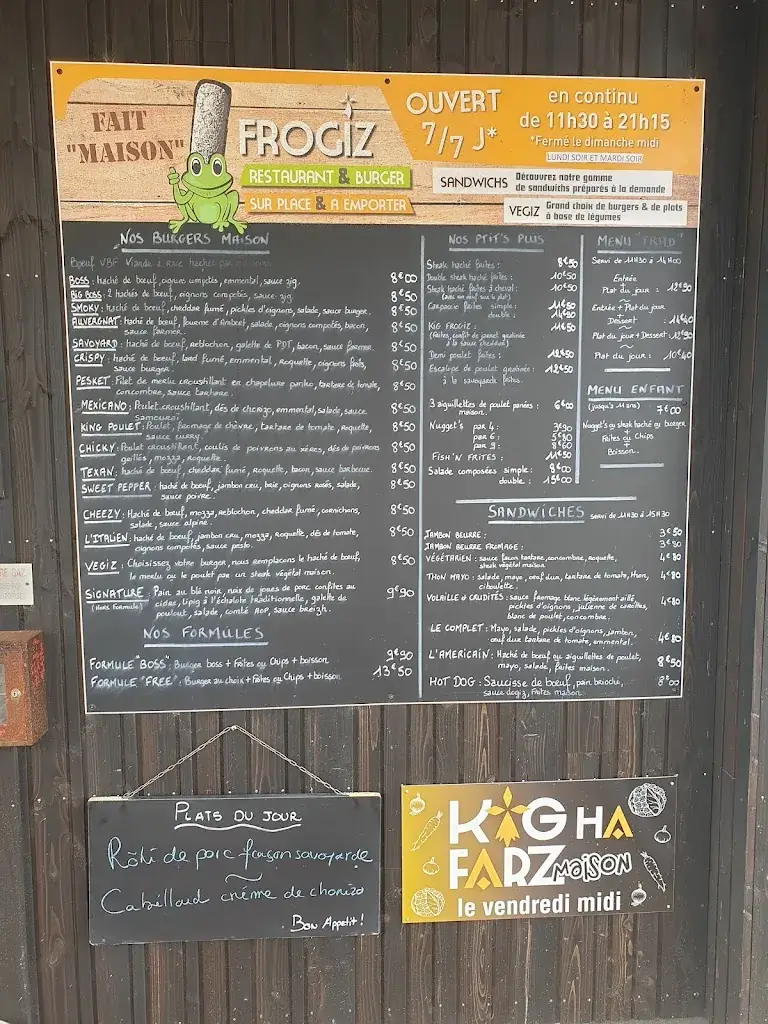 FAIT
"MAISON"
FROGIZ
RESTAURANT & BURGER
SUR PLACE & A EMPORTER
OUVERT
7/7 J*
en continu
de 11h30 à 21h15
*Fermé le dimanche midi
LUNDI SOIR ET MARDI SOIR
SANDWICHS
Découvrez notre gamme
de sandwichs préparés à la demande
VEGIZ
Grand choix de burgers & de plats
à base de légumes
NOS BURGERS MAISON
Boeuf VBF Viande à race hachée par
BOSS: haché de bœuf, oignons compotés, emmental, sauce zig. 8€00
BIG BOSS: 2 hachés de bœuf, oignons compotés, sauce zig. 8€50
SMOKY: haché de bœuf, cheddar fumé, pickles d'oignons, salade, sauce burger. 8€50
AUVERGNAT: haché de bœuf, fourme d'Ambert, salade, oignons compotés, bacon,
sauce fermier. 8€50
SAVOYARD: haché de bœuf, reblochon, galette de PDT, bacon, sauce fermier. 8€50
CRISPY: haché de bœuf, lard fumé, emmental, roquette, oignons frits,
sauce burger. 8€50
PESKET: Filet de merlu croustillant en chapelure panko, tartare de tomate,
concombre, sauce tartare. 8€50
MEXICANO: Poulet croustillant, dés de chorizo, emmental, salade, sauce
samouraï 8€50
KING POULET: Poulet, fromage de chèvre, tartare de tomate, roquette,
sauce curry. 8€50
CHICKY: Poulet croustillant, coulis de poivrons au xérès, dés de poivrons
grillés, mozza, roquette. 8€50
TEXAN: haché de bœuf, cheddar fumé, roquette, bacon, sauce barbecue. 8€50
SWEET PEPPER: haché de bœuf, jambon cru, brie, oignons rosés, salade,
sauce poivre. 8€50
CHEEZY: Haché de bœuf, mozza, reblochon, cheddar fumé, cornichons,
salade, sauce alpine. 8€50
L'ITALIEN: haché de bœuf, jambon cru, mozza, roquette, dés de tomate,
oignons compotés, sauce pesto. 8€50
VEGIZ: Choisissez votre burger, nous remplaçons le haché de bœuf,
le merlu ou le poulet par un steak végétal maison. 8€50
SIGNATURE: Pain au blé noir, noix de joues de porc confites au
(Hors Formule) cidre, lipig à l'échalote traditionnelle, galette de
poulout, salade, comté AOP, sauce breizh. 9€90
NOS FORMULES
FORMULE "BOSS": Burger boss + Frites ou Chips + boisson 9€90
FORMULE "FREE": Burger au choix + Frites ou Chips + boisson 13€50
NOS PTIT'S PLUS
Steak haché frites: 8€50
Double steak haché frites: 10€50
Steak haché frites à cheval: 10€50
(avec un œuf sur le plat)
Carpaccio frites simple: 11€50
double: 14€50
KIG FROGIZ: 11€50
(Frites, confit de jarret gratinée
à la sauce cheddar)
Demi poulet frites: 12€50
Escalope de poulet gratinée: 12€50
à la savoyarde frites.
3 aiguillettes de poulet panées: 6€00
maison.
Nugget's par 4: 3€90
par 6: 5€80
par 9: 8€60
FISH'N FRITES: 11€50
Salade composées simple: 8€00
double: 15€00
MENU "TRAD"
Servi de 11H30 à 14H00
Entrée
~
Plat du jour: 12€90
Entrée + Plat du jour
~
Dessert: 11€40
Plat du jour + Dessert: 12€90
~
Plat du jour: 10€40
MENU ENFANT
(jusqu'à 11 ans) 7€00
Nugget's ou steak haché ou burger
+
Frites ou Chips
+
Boisson.
SANDWICHES servi de 11H30 à 15H30
JAMBON BEURRE: 3€50
JAMBON BEURRE FROMAGE: 3€80
VÉGÉTARIEN: sauce façon tartare, concombre, roquette,
steak végétal maison 4€80
THON MAYO: salade, mayo, œuf dur, tartare de tomate, thon,
ciboulette. 4€80
VOLAILLE & CRUDITÉS: sauce fromage blanc légèrement aillé,
pickles d'oignons, julienne de carottes,
blanc de poulet, concombre. 4€80
LE COMPLET: Mayo, salade, pickles d'oignons, jambon,
œuf dur, tartare de tomate, emmental. 4€80
L'AMERICAIN: Haché de bœuf ou aiguillettes de poulet,
mayo, salade, frites maison. 8€50
HOT DOG: Saucisse de bœuf, pain brioché,
sauce dogiz, frites maison. 8€00
PLATS DU JOUR
Rôti de porc façon savoyarde
~
Cabillaud crème de chorizo
Bon Appetit!
KIG HA
FARZ MAISON
le vendredi midi